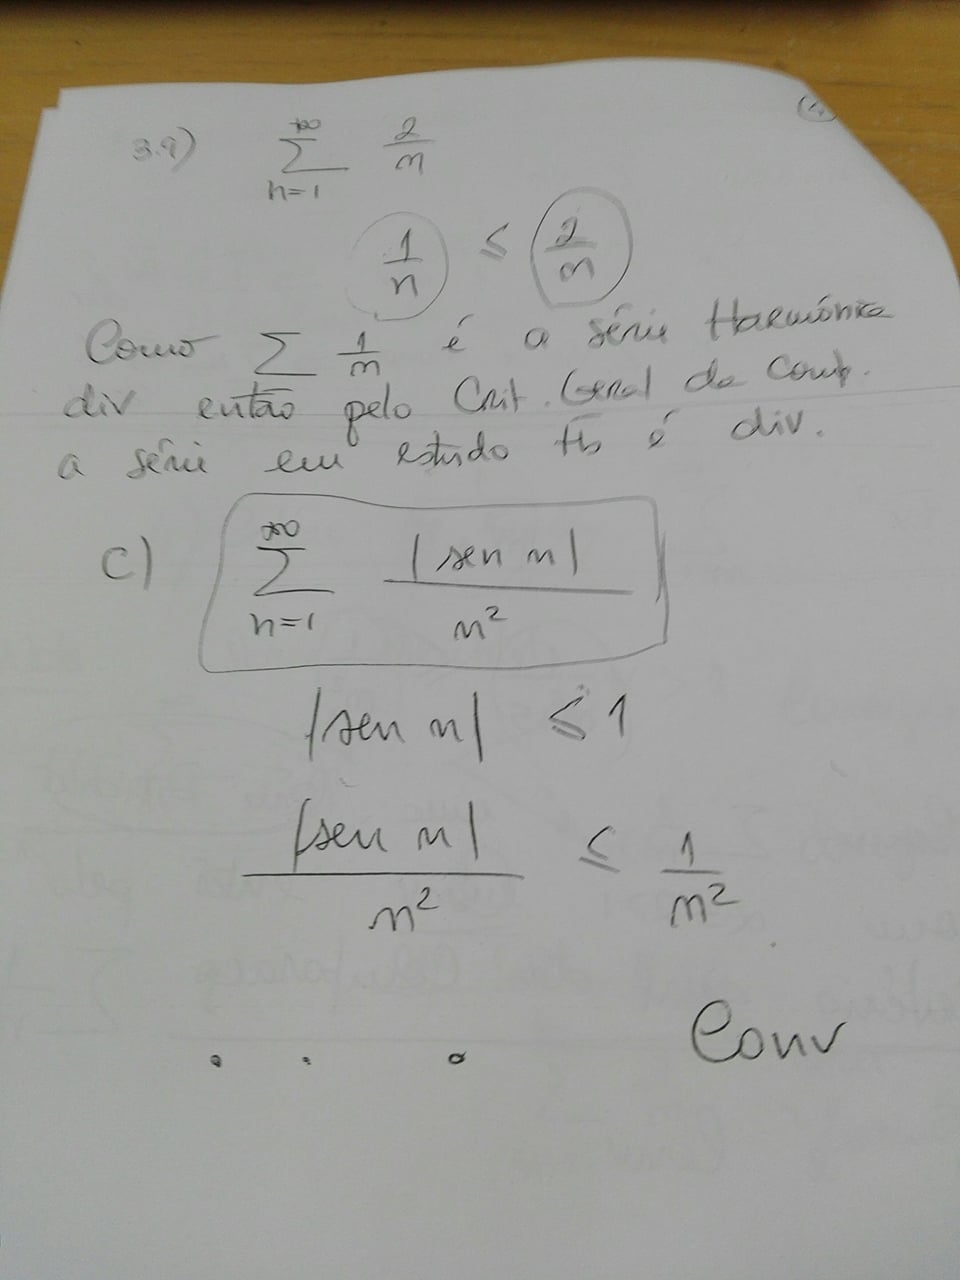 (4)
3.9) +∞ ∑ n=1 2/n
1/n ≤ 2/n
Como ∑ 1/n é a série Harmónica
div então pelo Crit. Geral de Comp.
a série em estudo tb é div.
c) ∞ ∑ n=1 |sen n| / n²
|sen n| ≤ 1
|sen n| / n² ≤ 1/n²
. . . Conv